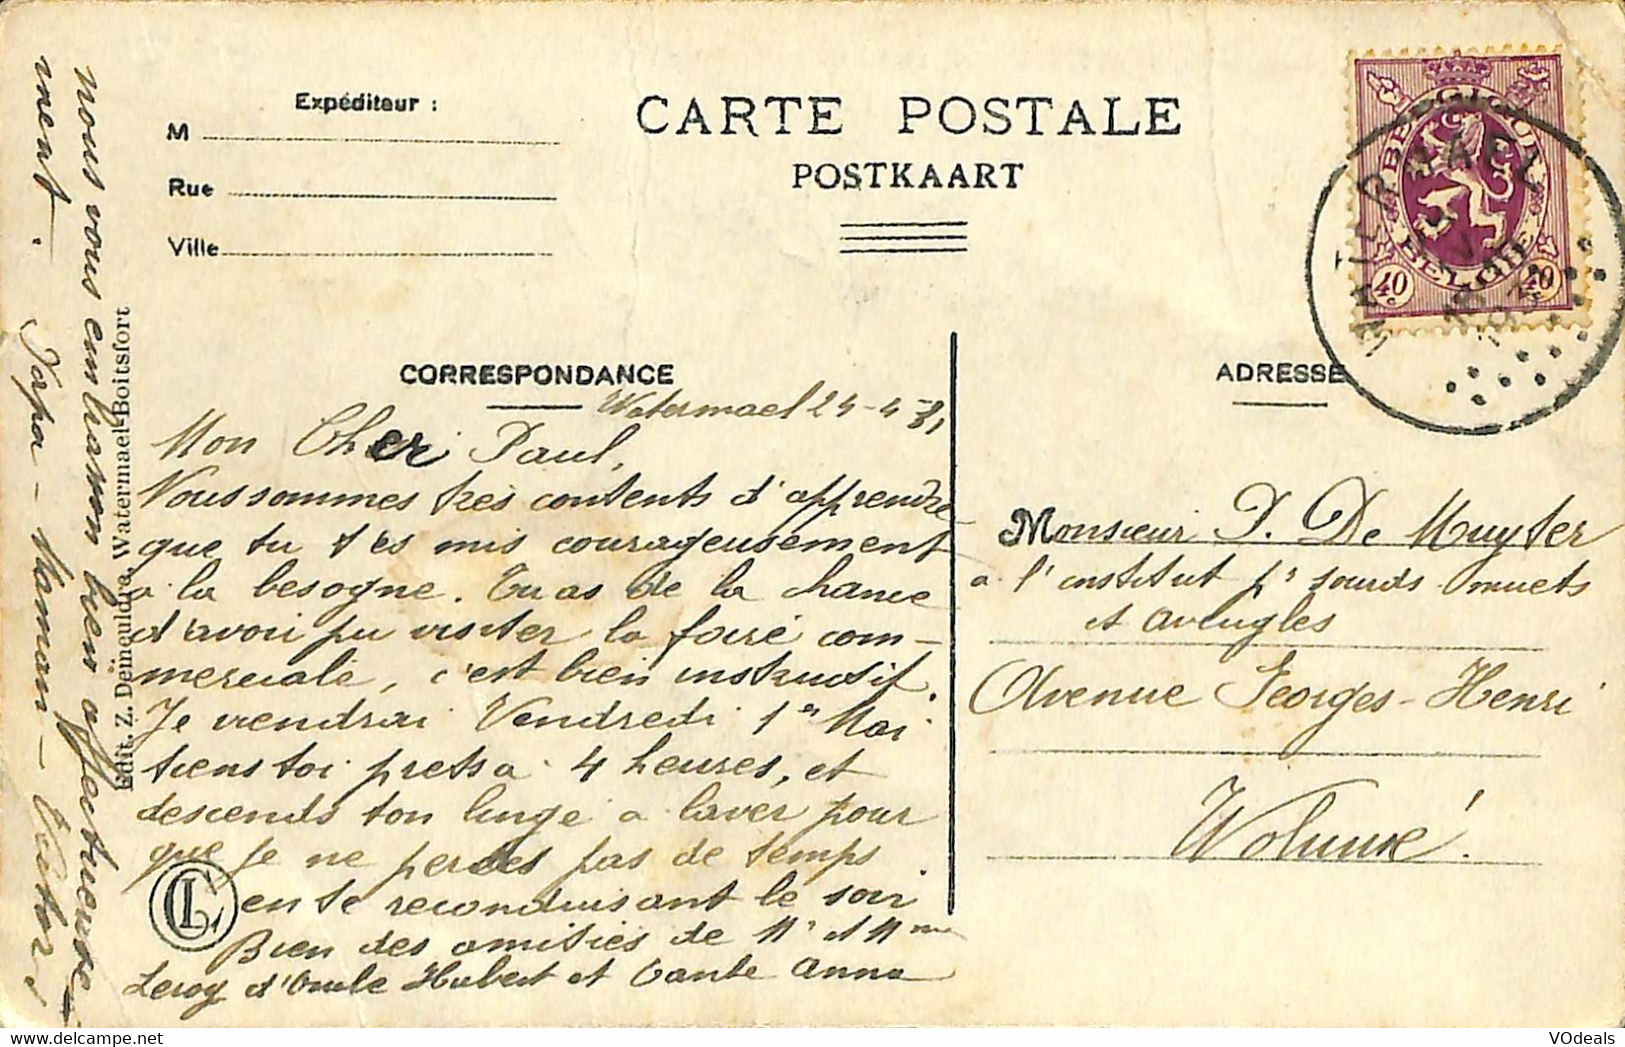 Expéditeur :
M
Rue
Ville
CARTE POSTALE
POSTKAART
BELGIQUE
BELGIË
40 40
CORRESPONDANCE
ADRESSE
Watermael 24-4-31
Mon Cher Paul,
Nous sommes très contents d'apprendre
que tu t'es mis courageusement
a la besogne. Tu as de la chance
d'avoir pu visiter la foire com-
merciale, c'est bien instructif.
Je viendrai Vendredi 1er Mai
tiens toi prets a 4 heures, et
descends ton linge a laver pour
que je ne perdes pas de temps
en te reconduisant le soir
Bien des amitiés de Mr et Mme
Leroy d'Oncle Hubert et Tante Anna
nous vous embrasson bien affectueuse-
ment. Papa - Maman - Victor.
Edit. Z. Demeuldre, Watermael-Boitsfort
Monsieur P. De Muyter
a l'institut pr sourds muets
et aveugles
Avenue Georges-Henri
Woluwé!
VOdeals